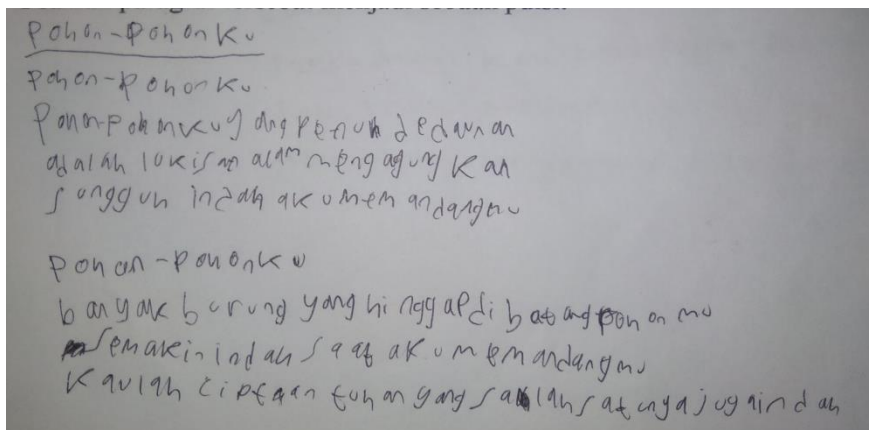 Pohon-Pohonku
Pohon-Pohonku
Pohon-Pohonku yang penuh dedaunan
adalah lukisan alam mengagungkan
sungguh indah aku memandangmu
Pohon-Pohonku
banyak burung yang hinggap di batang pohonmu
semakin indah saat aku memandangmu
Kaulah ciptaan tuhan yang salah satunya juga indah